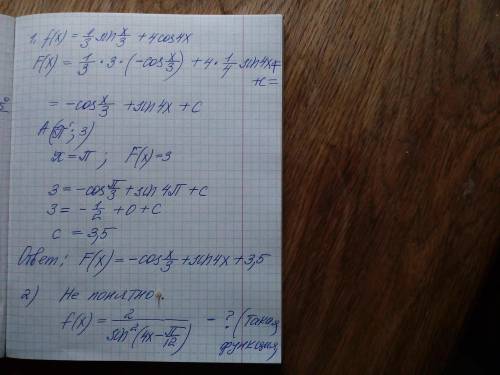 1. f(x) = 1/3 sin x/3 + 4cos4x
F(x) = 1/3 · 3 · (-cos x/3) + 4 · 1/4 sin4x+
+c=
= -cos x/3 + sin4x + c
A(π; 3)
x = π ; F(x)=3
3 = -cos π/3 + sin 4π + c
3 = -1/2 + 0 + c
c = 3,5
Ответ: F(x) = -cos x/3 + sin4x + 3,5
2) Не понятно.
f(x) = 2/sin²(4x - π/12) - ? (такая
функция